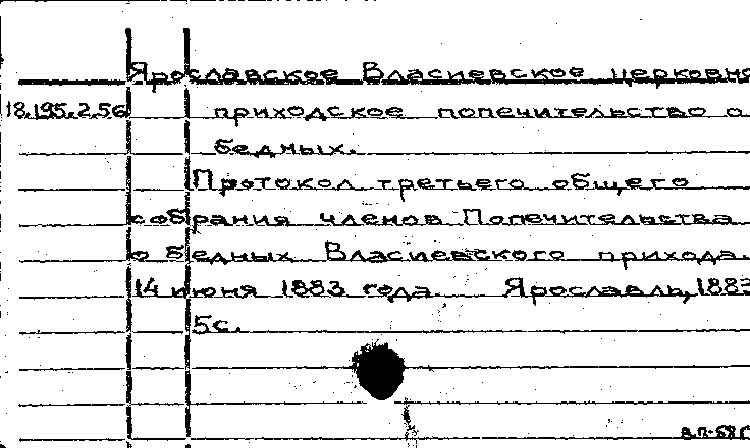 Ярославское Власиевское церковно
18.195.2.56 приходское попечительство о
бедных.
Протокол третьего общего
собрания членов Попечительства
о бедных Власиевского прихода.
14 июня 1883 года. Ярославль, 1883
5с.